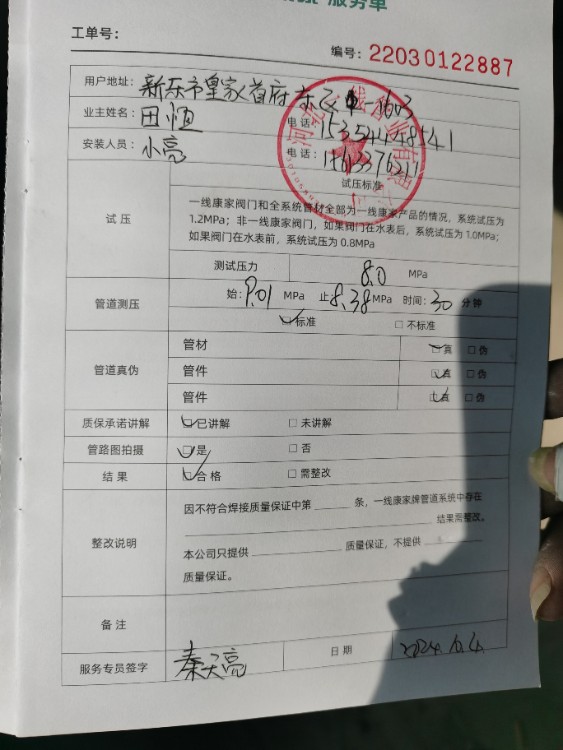 服务单
工单号：
编号：22030122887
用户地址： 新乐市皇家首府 1603
业主姓名： 田恒 电话：
安装人员： 小高 电话：
试压标准
试压 一线康家阀门和全系统管材全部为一线康家产品的情况，系统试压为
1.2MPa；非一线康家阀门，如果阀门在水表后，系统试压为1.0MPa；
如果阀门在水表前，系统试压为0.8MPa
测试压力 8.0 MPa
管道测压 始：9.01 MPa 止8.38MPa 时间：30 分钟
☑标准 □不标准
管道真伪 管材 ☑真 □伪
管件 ☑真 □伪
管件 ☑真 □伪
质保承诺讲解 ☑已讲解 □未讲解
管路图拍摄 ☑是 □否
结果 ☑合格 □需整改
整改说明 因不符合焊接质量保证中第 条，一线康家牌管道系统中存在
结果需整改。
本公司只提供 质量保证，不提供
质量保证。
备注
服务专员签字 秦天亮 日期 2024.10.4